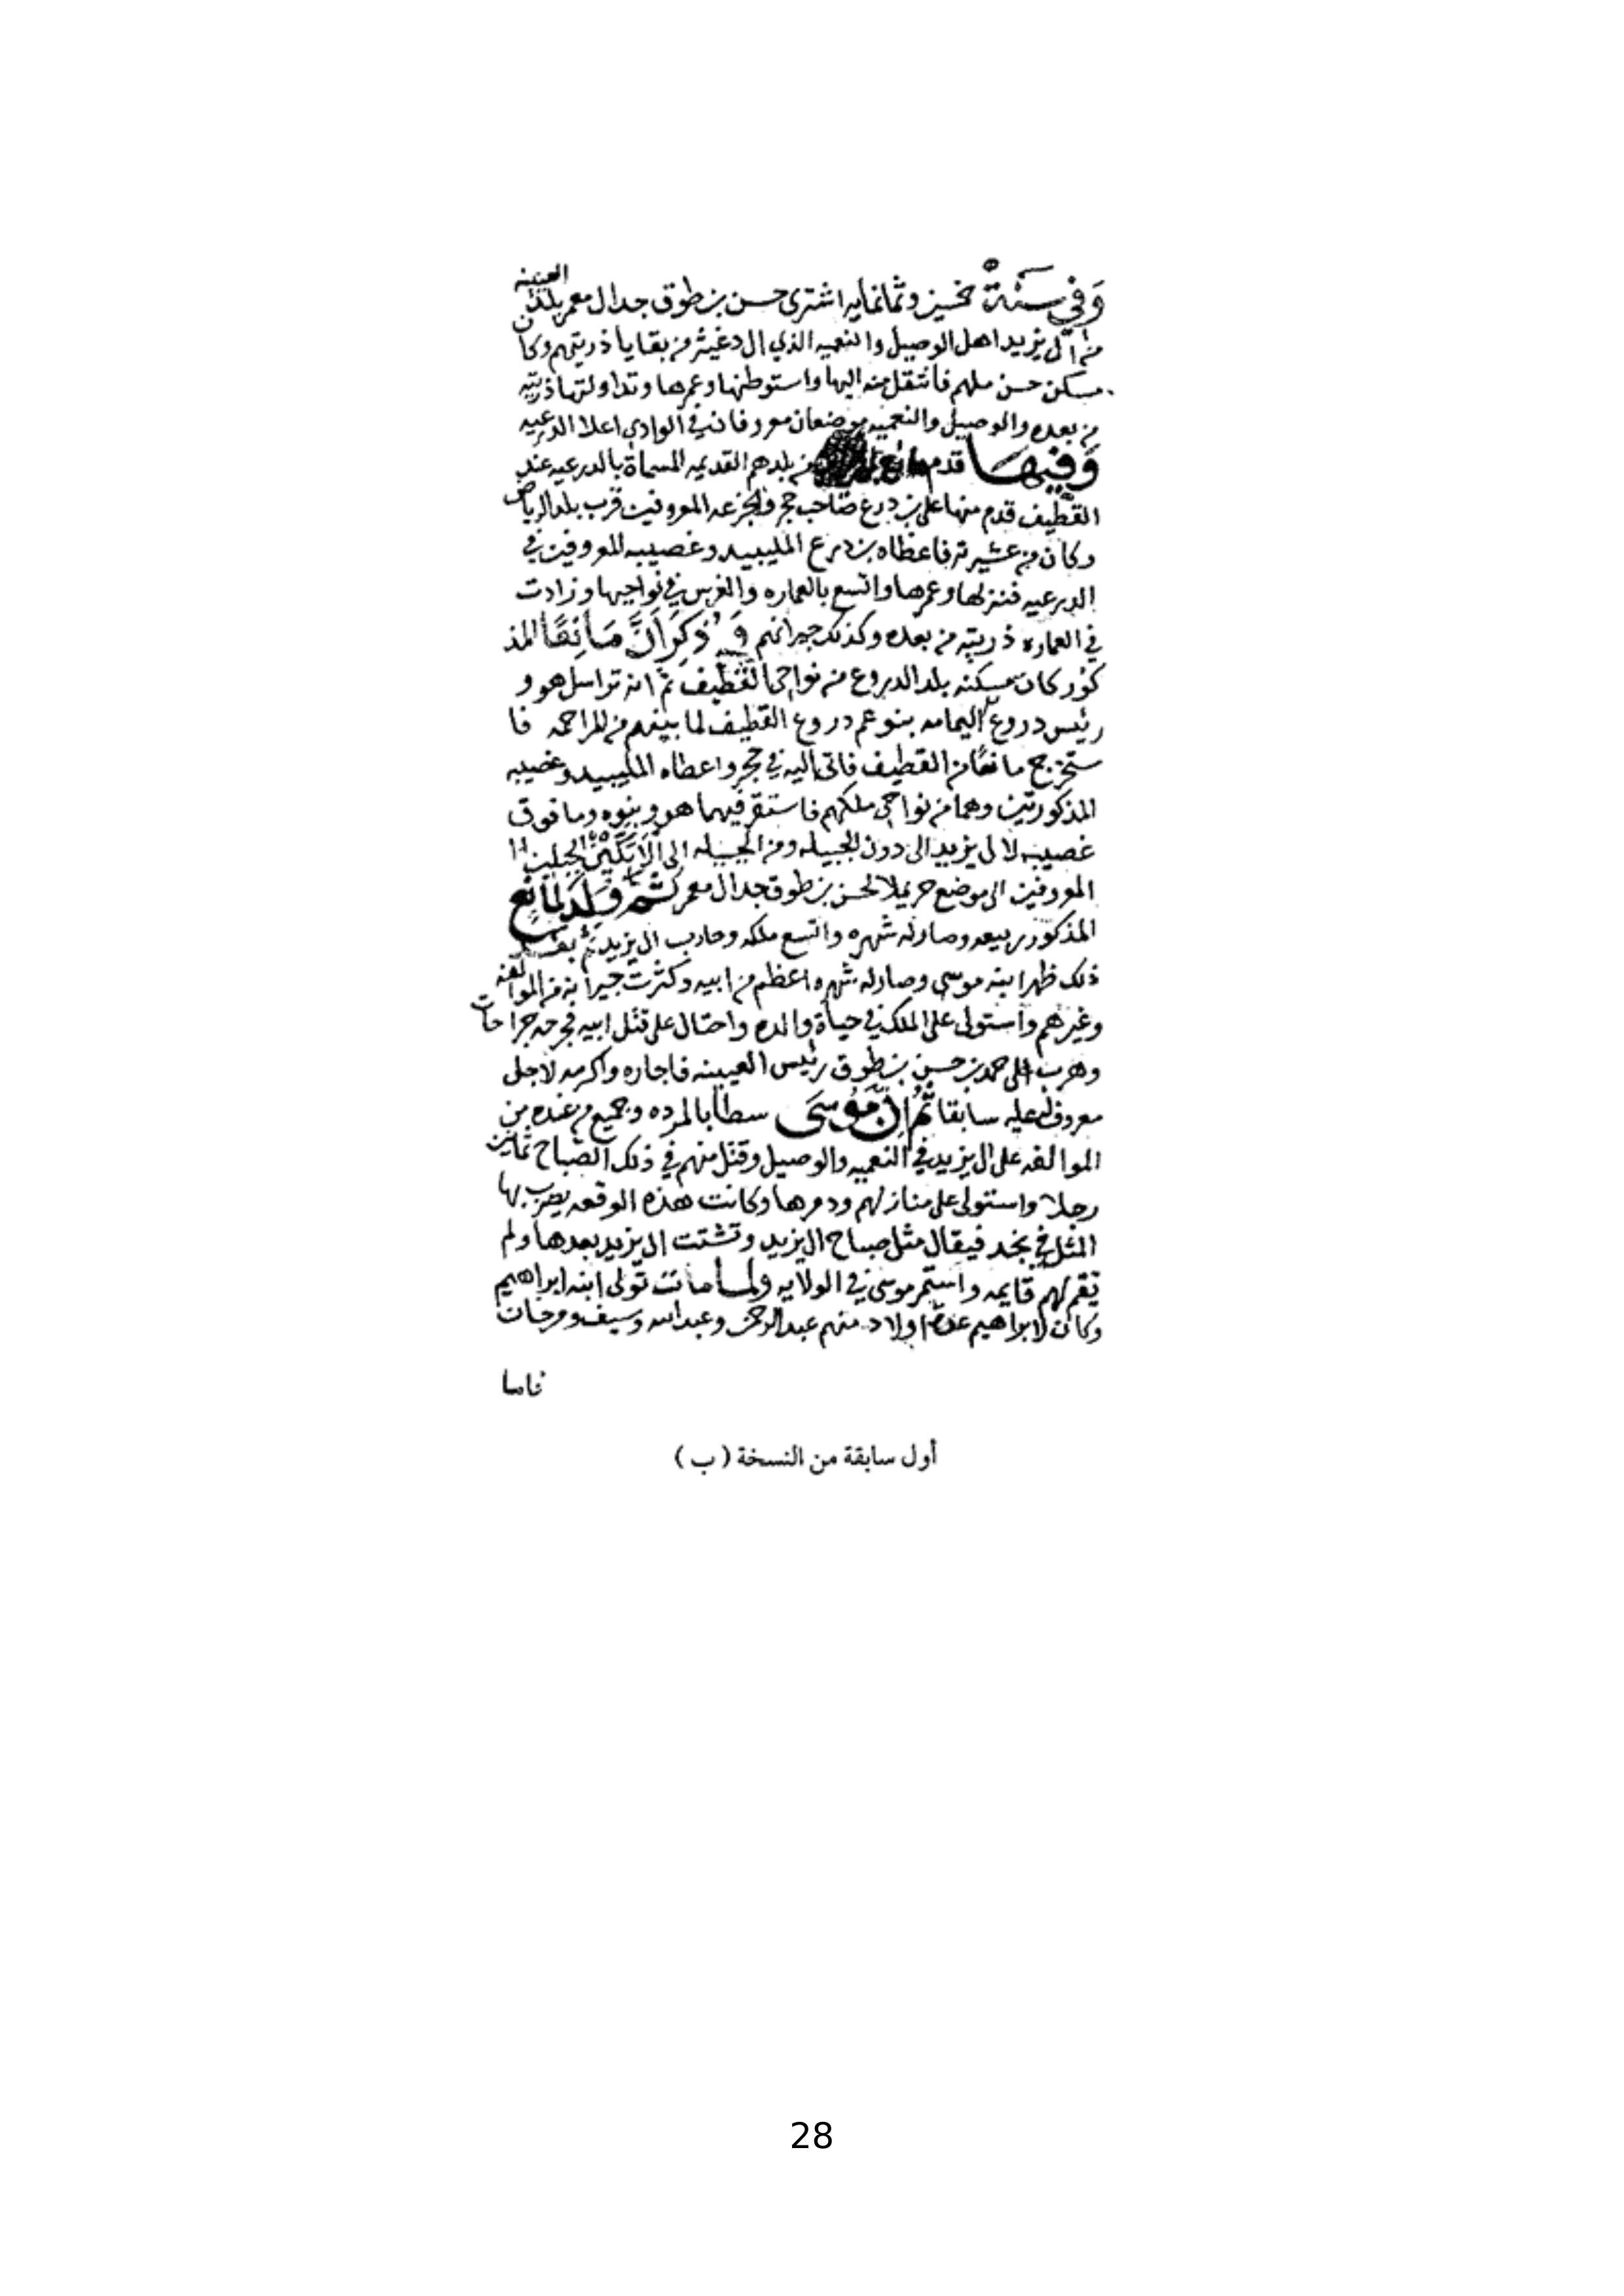 وَفي سَنَة خمسين وثمانمايه اشترى حسن بن طوق جد ال معمر بلد العيينه
من آل يزيد اهل الوصيل والنعميه الذي ال دغيثر من بقايا ذريتهم وكان
مسكن حسن ملهم فانتقل منه اليها واستوطنها وعمرها وتداولتها ذريته
من بعده والوصيل والنعميه موضعان معروفان في الوادي اعلا الدرعيه
وَفيهَا قدم مانع من بلدهم القديمه المسماة بالدرعيه عند
القطيف قدم منها على بن درع صاحب حجر والجزعه المعروفين قرب بلد الرياض
وكان من عشيرته فاعطاه بن درع المليبيد وغصيبه المعروفين في
الدرعيه فنزلها وعمرها واتسع بالعماره والغرس في نواحيها وزادت
في العماره ذريته من بعده وكذلك جيرانهم وَ ذُكِرَ اَنَّ مَانِعًا المذ
كور كان مسكنه بلد الدروع من نواحي القطيف ثم انه تراسل هو و
رئيس دروع اليمامه بنوعم دروع القطيف لما بينهم من المراحمه فا
ستخرج مانعًا من القطيف فاتى اليه في حجر واعطاه المليبيد وغصيبه
المذكورتين وهما من نواحي ملكهم فاستقر فيهما هو وبنوه وما فوق
غصيبه لال يزيد الى دون الجبيله ومن الجبيله الى الاَبكَّيْن الجبلين
المعروفين الى موضع حريملا لحسن بن طوق جد ال معمر ثم وَلَد لمانع
المذكور ربيعه وصار له شهره واتسع ملكه وحارب ال يزيد ثم بعد
ذلك ظهر ابنه موسى وصار له شهره اعظم من ابيه وكثرت جيرانه من الموالفه
وغيرهم واستولى على الملك في حياة والده واحتال على قتل ابيه فجرحه جراحات
وهرب الى حمد بن حسن بن طوق رئيس العيينه فاجاره واكرمه لاجل
معروف له عليه سابقا ثُم اِنَّ مُوسَى سطا بالمرده وجميع من عنده من
الموالفه على ال يزيد في النعميه والوصيل وقتل منهم في ذلك الصباح ثمانين
رجلا واستولى على منازلهم ودمرها وكانت هذه الوقعه يضرب بها
المثل في نجد فيقال مثل صباح ال يزيد وتشتت ال يزيد بعدها ولم
تقم لهم قايمه واستمر موسى في الولايه ولما مات تولى ابنه ابراهيم
وكان لابراهيم عدة اولاد منهم عبدالرحمن وعبدالله وسيف ومرخان
فاما
أول سابقة من النسخة ( ب )
28